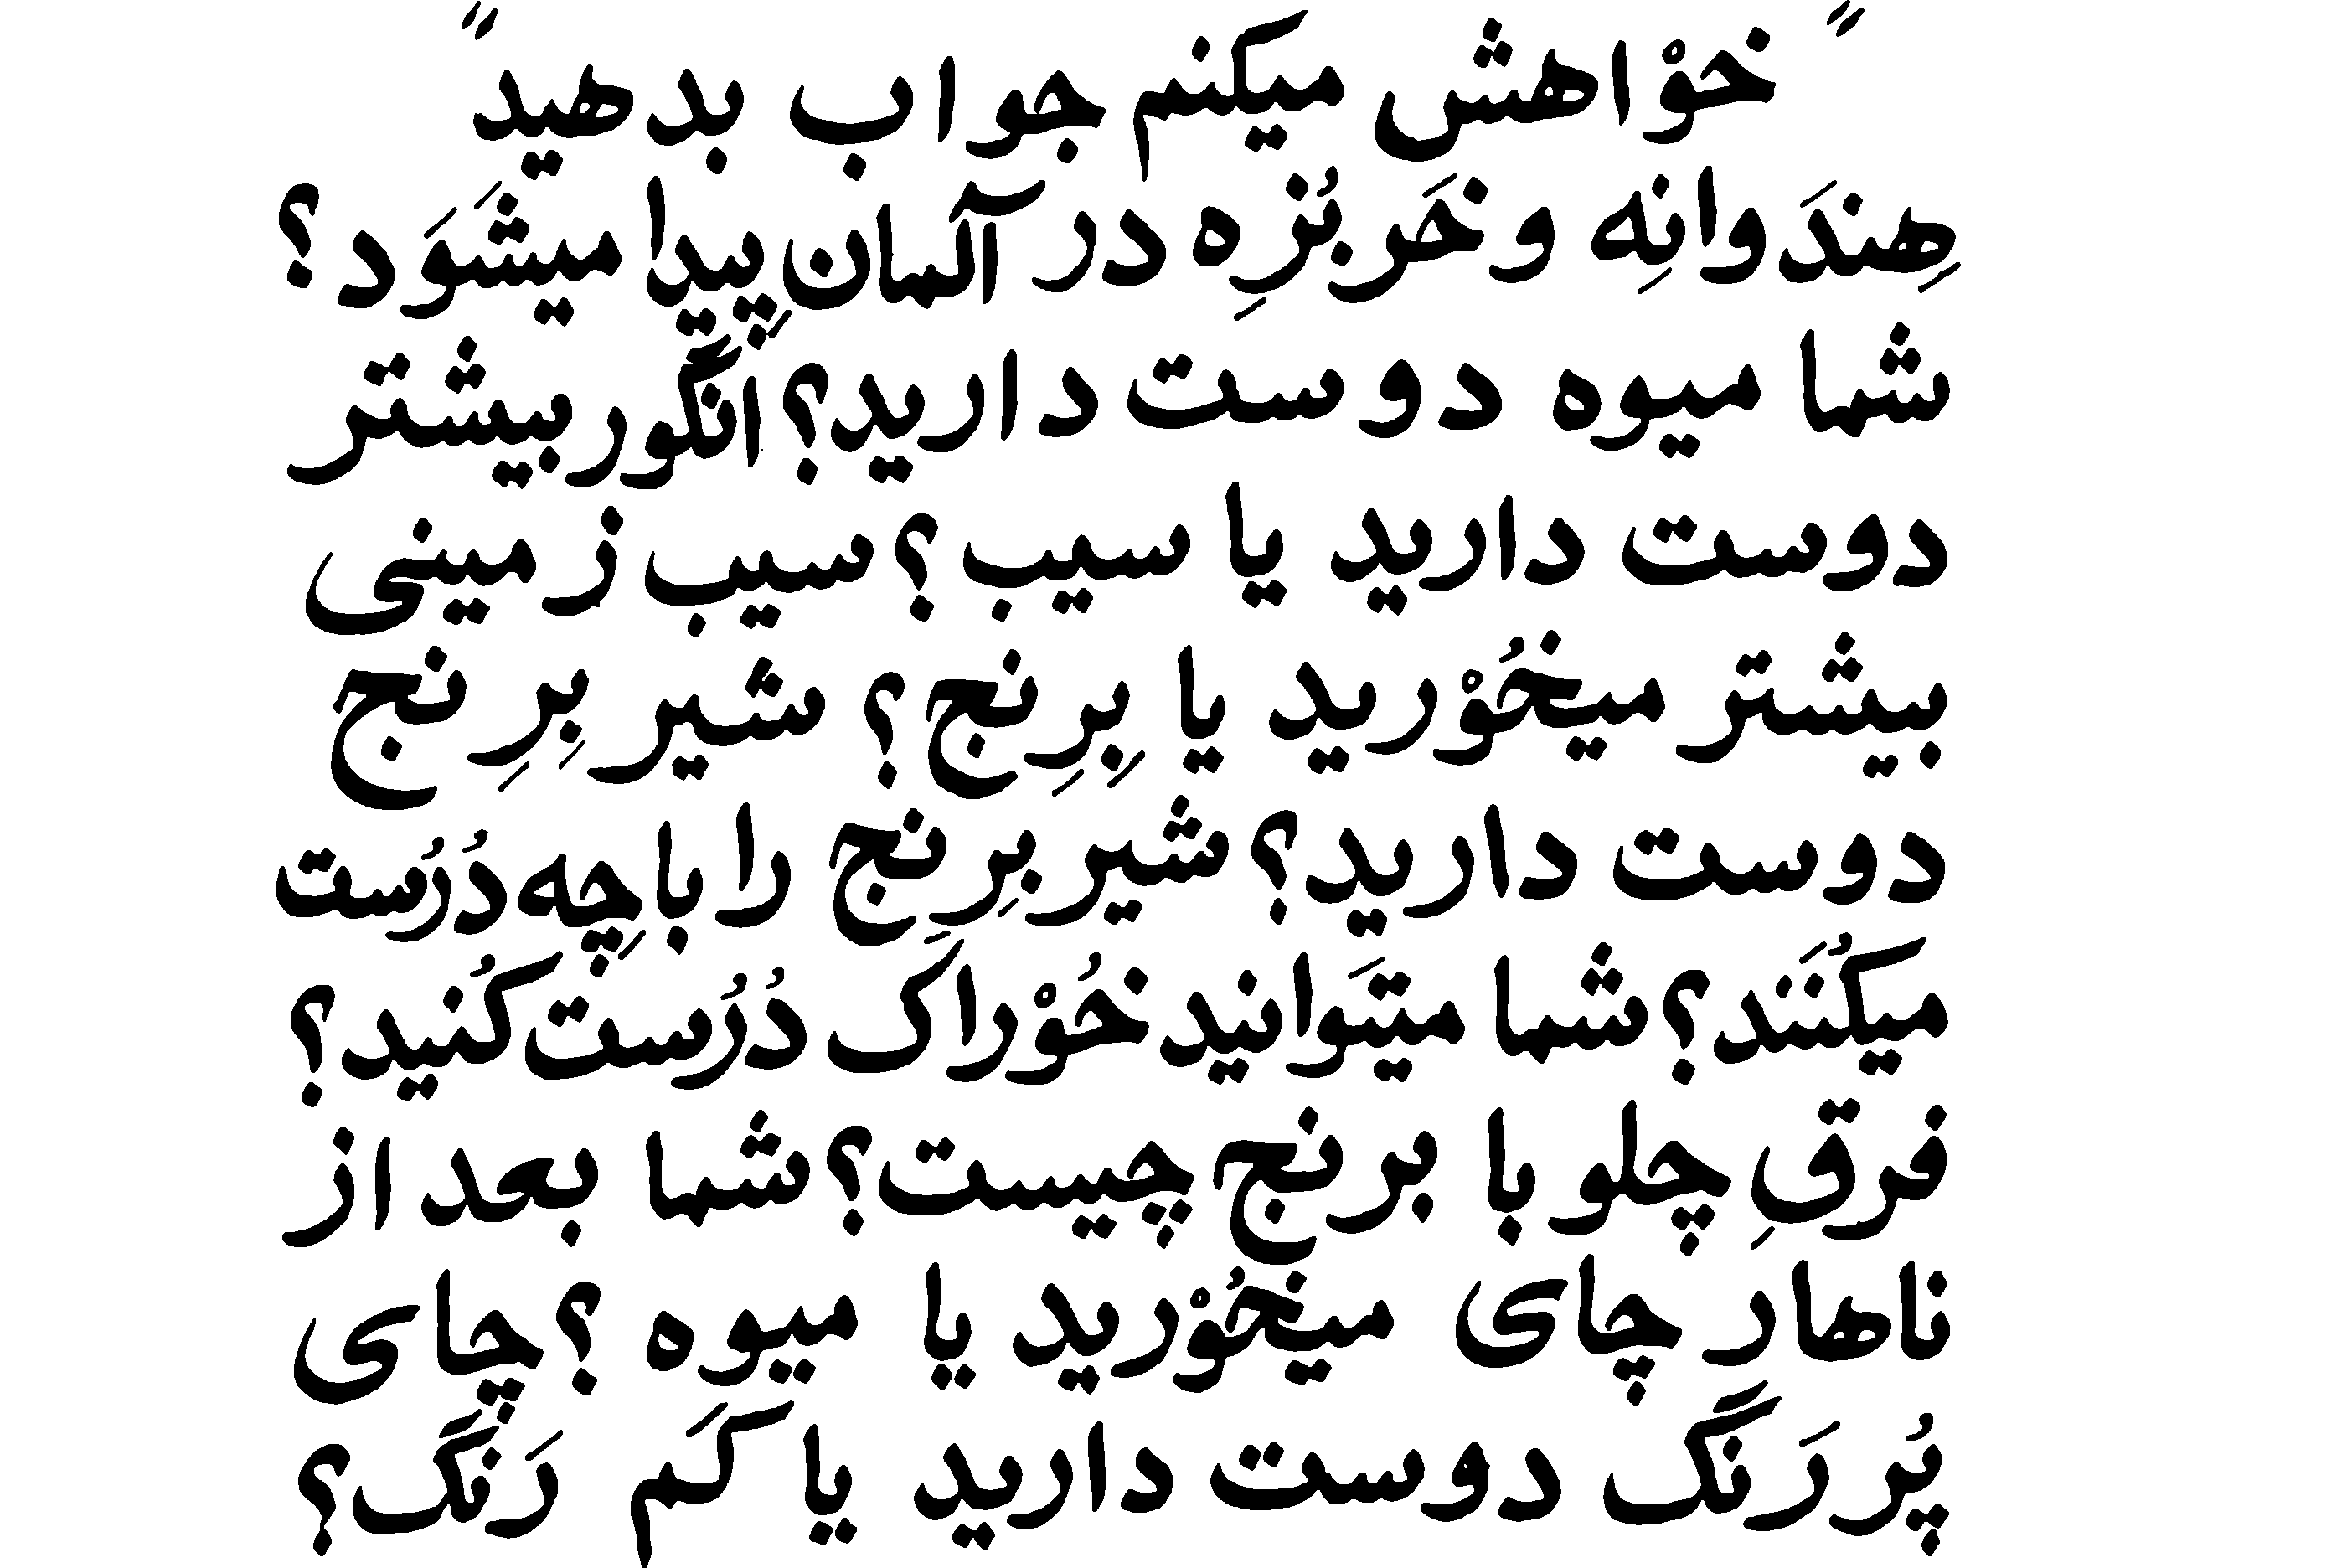 "خوْاهش میکنم جواب بدهید"
هِندَوانِه و خَربُزِه در آلمان پیدا میشَوَد؟
شما میوه دوست دارید؟ اَنگور بیشتر
دوست دارید یا سیب؟ سیب زمینی
بیشتر میخُوْرید یا بِرِنج؟ شیر بِرِنج
دوست دارید؟ شیر برِنج را با چِه دُرُست
میکُنَند؟ شما میتَوانید خُوْراک دُرُست کُنید؟
فرقِ چلو با برنج چیست؟ شما بعد از
ناهار چای میخُوْرید یا میوه؟ چای
پُررَنگ دوست دارید یا کَم رَنگ؟